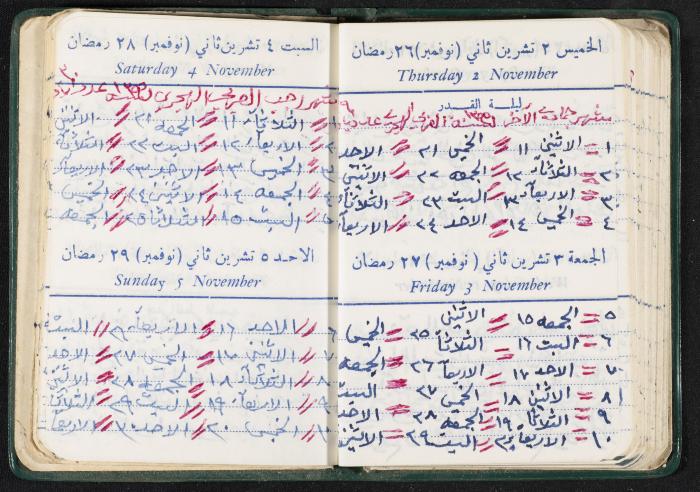 الخميس ٢ تشرين ثاني (نوفمبر) ٢٦ رمضان
Thursday 2 November
ليلة القدر
شهر جمادى الآخر لسنة القمري الهجري عدد
١ = الاثنين ١١ = الخميس ٢١ = الاحد
٢ = الثلاثاء ١٢ = الجمعه ٢٢ = الاثنين
٣ = الاربعاء ١٣ = السبت ٢٣ = الثلاثاء
٤ = الخميس ١٤ = الاحد ٢٤ = الاربعاء
الجمعة ٣ تشرين ثاني (نوفمبر) ٢٧ رمضان
Friday 3 November
٥ = الجمعه ١٥ = الاثنين ٢٥ = الخميس
٦ = السبت ١٦ = الثلاثاء ٢٦ = الجمعه
٧ = الاحد ١٧ = الاربعاء ٢٧ = السبت
٨ = الاثنين ١٨ = الخميس ٢٨ = الاحد
٩ = الثلاثاء ١٩ = الجمعه ٢٩ = الاثنين
١٠ = الاربعاء ٢٠ = السبت
السبت ٤ تشرين ثاني (نوفمبر) ٢٨ رمضان
Saturday 4 November
شهر رجب القمري الهجري لسنة عدد ٣٠
١ = الثلاثاء ١١ = الجمعه ٢١ = الاثنين
٢ = الاربعاء ١٢ = السبت ٢٢ = الثلاثاء
٣ = الخميس ١٣ = الاحد ٢٣ = الاربعاء
٤ = الجمعه ١٤ = الاثنين ٢٤ = الخميس
٥ = السبت ١٥ = الثلاثاء ٢٥ = الجمعه
الاحد ٥ تشرين ثاني (نوفمبر) ٢٩ رمضان
Sunday 5 November
٦ = الاحد ١٦ = الاربعاء ٢٦ = السبت
٧ = الاثنين ١٧ = الخميس ٢٧ = الاحد
٨ = الثلاثاء ١٨ = الجمعه ٢٨ = الاثنين
٩ = الاربعاء ١٩ = السبت ٢٩ = الثلاثاء
١٠ = الخميس ٢٠ = الاحد ٣٠ = الاربعاء